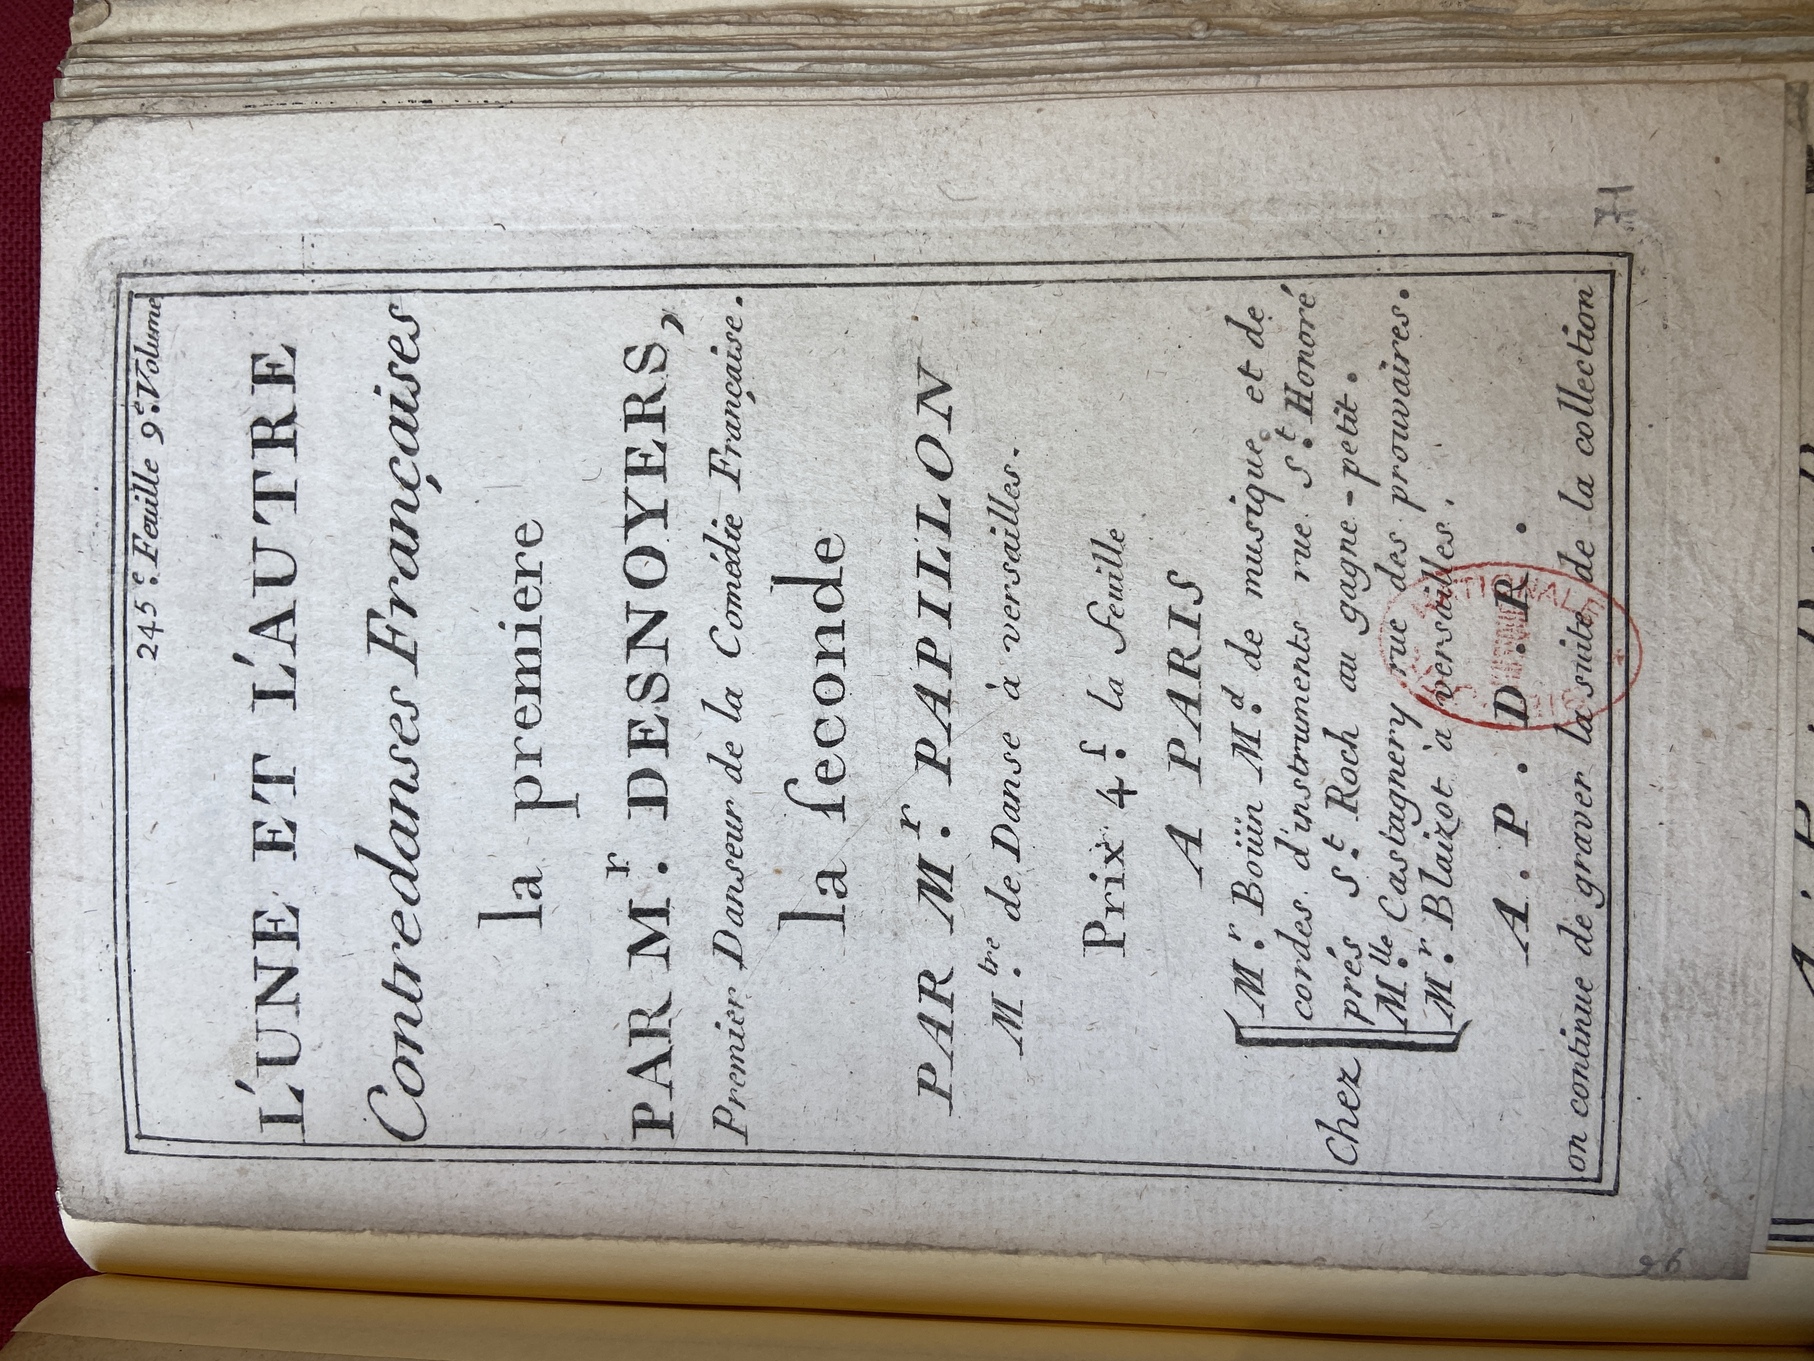 245.e Feuille 9.e Volume
L'UNE ET L'AUTRE
Contredanses Françaises
la premiere
PAR M.r DESNOYERS,
Premier Danseur de la Comédie Française.
la ſeconde
PAR M.r PAPILLON
M.tre de Danse à versailles.
Prix 4.ſ la feuille
A PARIS
Chez
M.r Boüin M.d de musique et de
cordes d'instruments rue S.t Honoré
prés S.t Roch au gagne-petit.
M.lle Castagnery rue des prouvaires.
M.r Blaizot à versailles.
A. P. D. R.
on continue de graver la suite de la collection
71